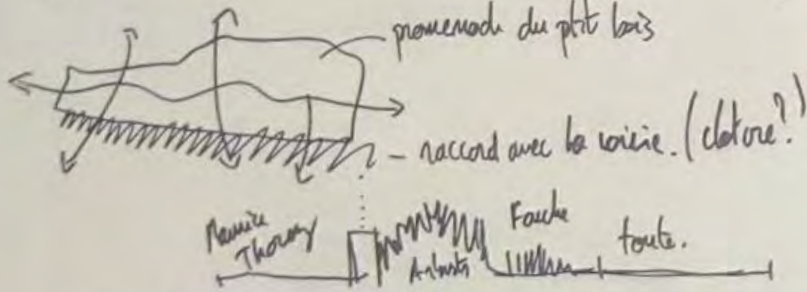 promenade du ptit bois
raccord avec la voirie. (cloture?)
Maurice
Thorez
Arbustes
Fauche
tonte.